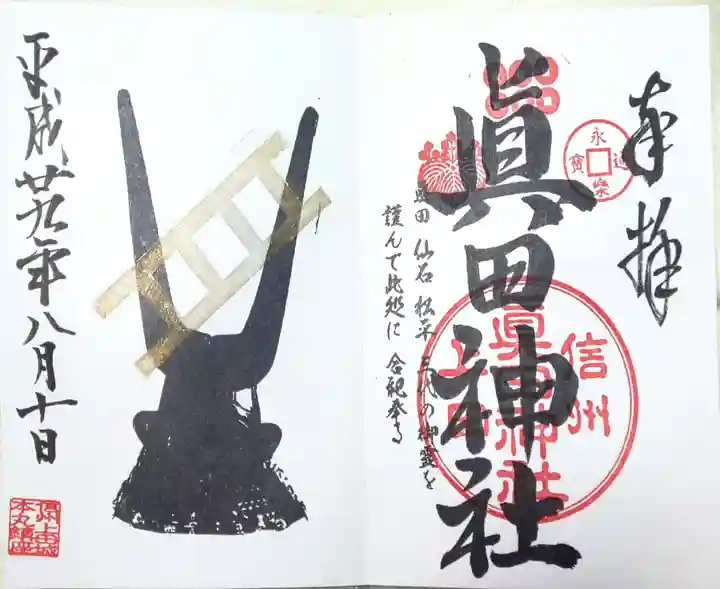 奉拝
永
通
樂
寶
眞田神社
信州
上田
眞田神社
眞田 仙石 松平 三代の御霊を
謹んで此処に 合祀奉る
平成廿九年八月十日